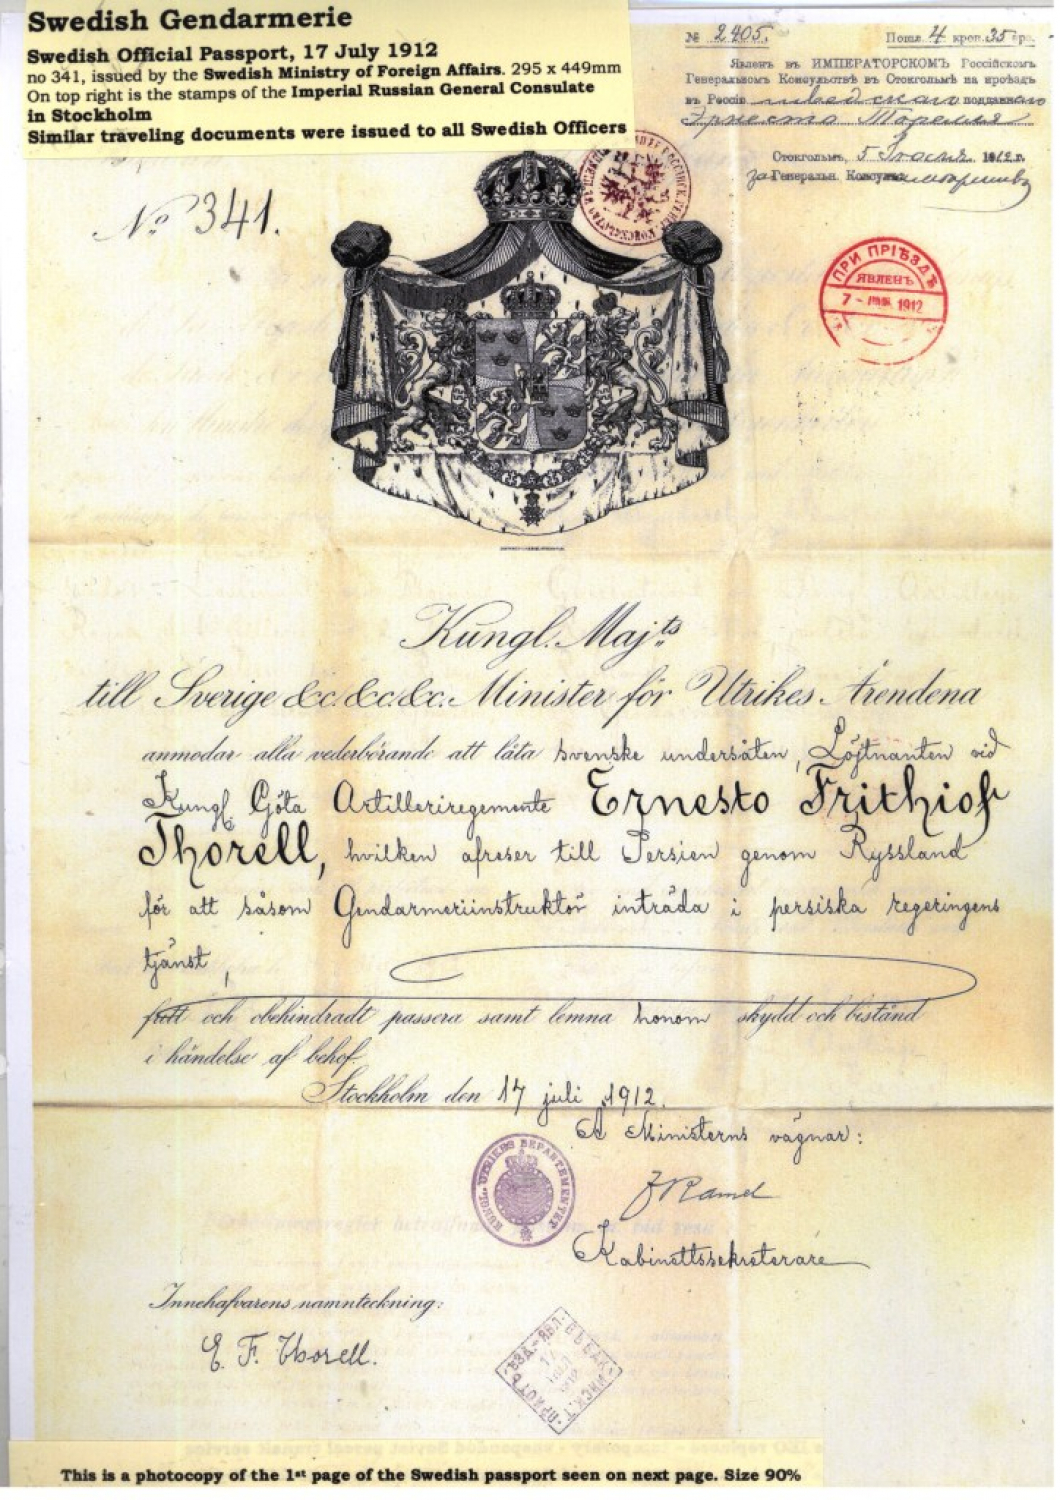 Swedish Gendarmerie
Swedish Official Passport, 17 July 1912
no 341, issued by the Swedish Ministry of Foreign Affairs. 295 x 449mm
On top right is the stamps of the Imperial Russian General Consulate
in Stockholm
Similar traveling documents were issued to all Swedish Officers
№ 2405. Пошл. 4 крон. 35 ер.
Явленъ въ ИМПЕРАТОРСКОМЪ Россійскомъ
Генеральномъ Консульствѣ въ Стокгольмѣ на проѣздъ
въ Россію шведскаго подданнаго
Эрнесто Торелля
Стокгольмъ, 5 1912 г.
за Генеральн. Консула
№ 341.
ПРИ ПРІѢЗДѢ
ЯВЛЕНЪ
7 - 1912
Kungl. Maj:ts
till Sverige &c. &c. &c. Minister för Utrikes Ärendena
anmodar alla vederbörande att låta svenske undersåten, Löjtnanten vid
Kungl. Göta Artilleriregemente Ernesto Frithiof
Thorell, hvilken afreser till Persien genom Ryssland
för att såsom Gendarmeriinstruktör inträda i persiska regeringens
tjänst,
fritt och obehindradt passera samt lemna honom skydd och bistånd
i händelse af behof.
Stockholm den 17 juli 1912.
Å Ministerns vägnar:
KONGL. UTRIKES DEPARTEMENTET
F Ramel
Kabinettssekreterare
Innehafvarens namnteckning:
E. F. Thorell.
This is a photocopy of the 1st page of the Swedish passport seen on next page. Size 90%